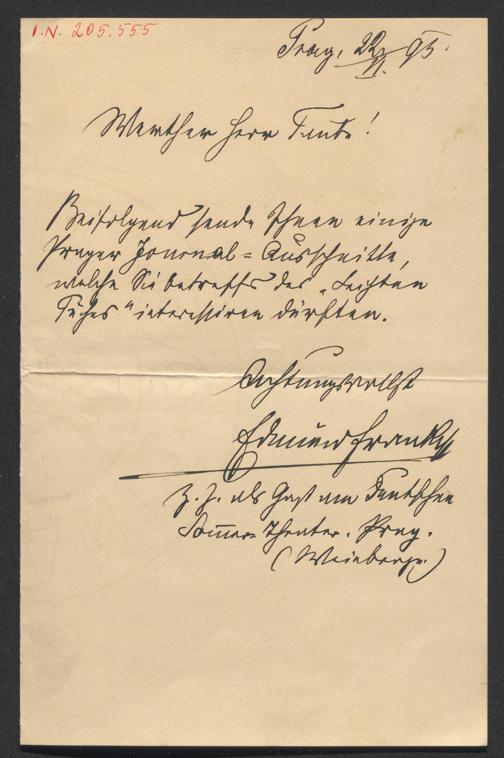 I.N. 205.555
Prag, 22/VI. 95.
Werther Herr Taube!
Beifolgend sende Ihnen einige
Prager Journal=Ausschnitte,
welche Sie betreffs des „Leichten
Tuches“ interessiren dürften.
Achtungsvollst
Edmund
z. Z. als Gast am Deutschen
Sommer Theater. Prag.
(Weinberge)